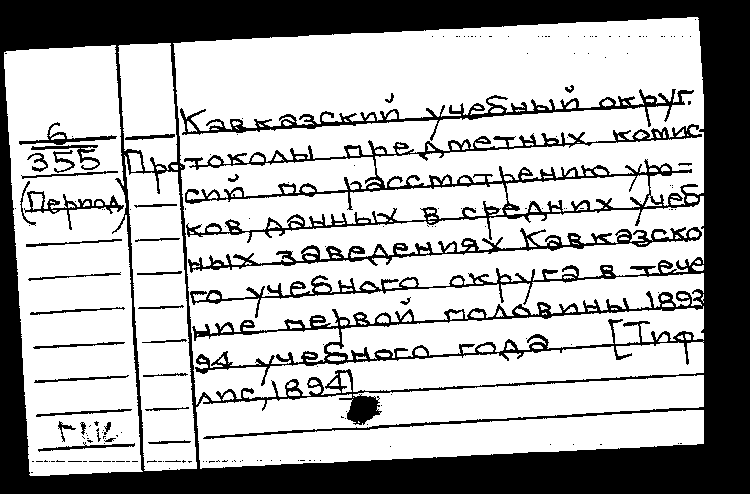 Кавказский учебный округ.
6
355
(Период)
Протоколы предметных комис-
сий по рассмотрению уро=
ков, данных в средних учеб
ных заведениях Кавказско
го учебного округа в тече
ние первой половины 1893
94 учебного года. [Тиф=
лис, 1894]